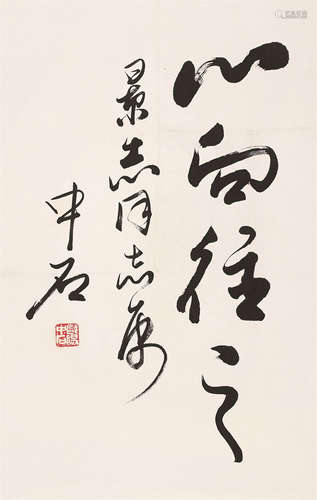 心向往之
景志同志属
中石